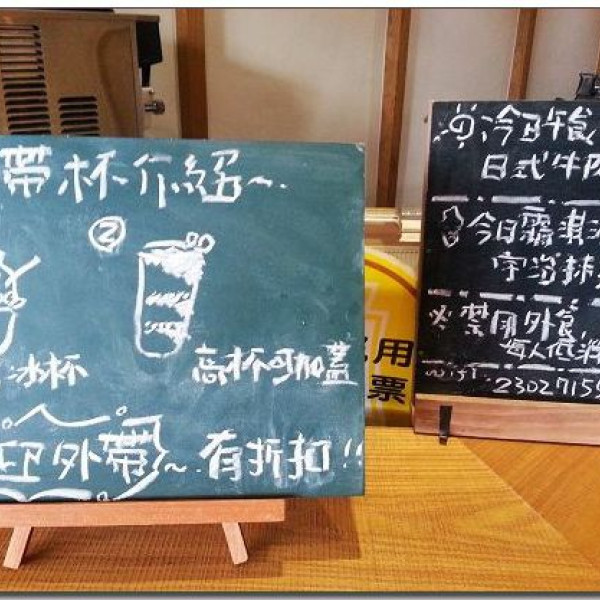 帶杯介紹~.
②
冰杯
高杯可加蓋
外帶~.有折扣!!
用
票
今日午食
日式牛肉
今日霜淇淋
宇治抹
※禁用外食
每人低消
2302715